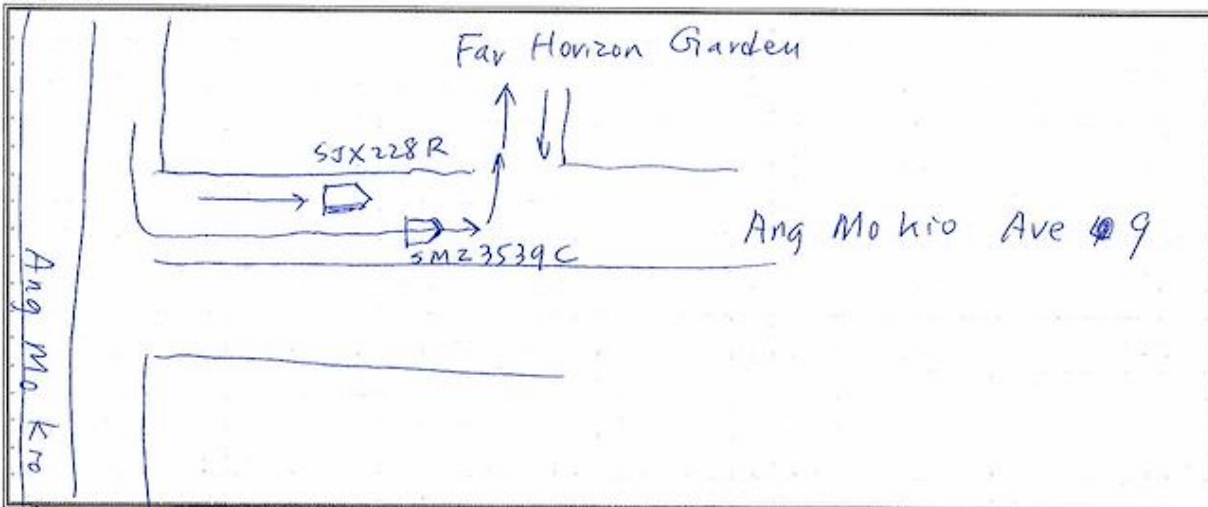 Far Horizon Garden
SJX228R
SMZ3539C
Ang Mo Kio Ave 9
Ang Mo Kio